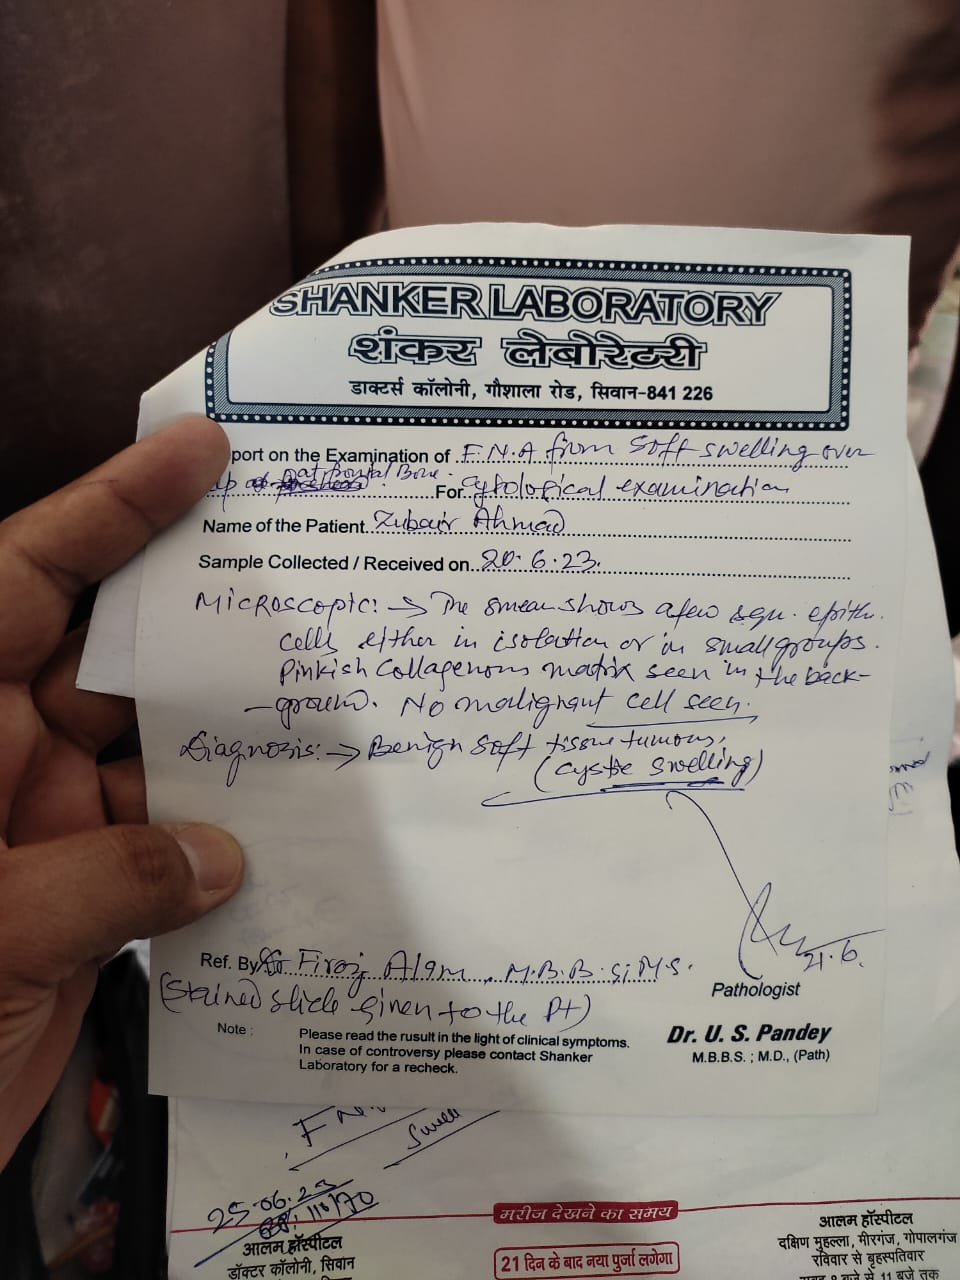 SHANKER LABORATORY
शंकर लेबोरेटरी
डाक्टर्स कॉलोनी, गौशाला रोड, सिवान-841 226
port on the Examination of F.N.A from soft swelling over
Bone. For cytological examination
Name of the Patient Zubair Ahmad
Sample Collected / Received on 20.6.23.
Microscopic: → The smear shows a few squ. epith.
cells either in isolation or in small groups.
Pinkish collagenous matrix seen in the back-
-ground. No malignant cell seen.
Diagnosis: → Benign soft tissue tumour,
(cystic swelling)
21.6.
Ref. By Dr Firoz Alam, M.B.B.S;M.S.
(Stained slide given to the Pt)
Pathologist
Note : Please read the rusult in the light of clinical symptoms.
In case of controversy please contact Shanker
Laboratory for a recheck.
Dr. U. S. Pandey
M.B.B.S. ; M.D., (Path)
25.06.23
110/70
मरीज देखने का समय
आलम हॉस्पीटल
डॉक्टर कॉलोनी, सिवान
21 दिन के बाद नया पुर्जा लगेगा
आलम हॉस्पीटल
दक्षिण मुहल्ला, मीरगंज, गोपालगंज
रविवार से बृहस्पतिवार
बजे से 11 बजे तक